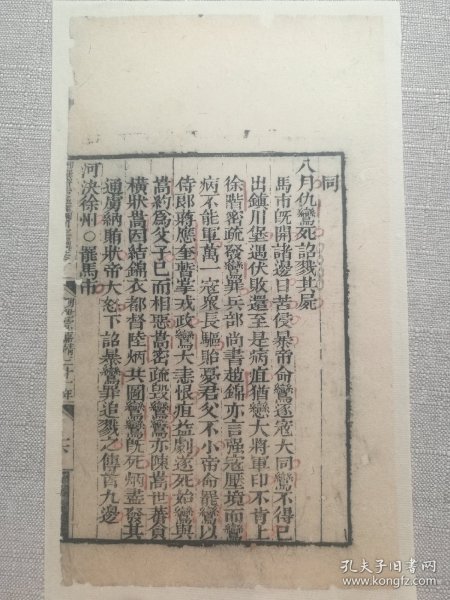 同
八月仇鸞死詔戮其屍
馬市旣開諸邊日苦侵暴帝命鸞逐寇大同鸞不得已
出鎮川堡遇伏敗還至是病疽猶戀大將軍印不肯上
徐階密疏發鸞罪兵部尚書趙錦亦言强寇壓境而鸞
病不能軍萬一寇衆長驅貽憂君父不小帝命罷鸞以
侍郎蔣應奎暫掌戎政鸞大恚恨疽益劇遂死始鸞與
嵩約爲父子已而相惡嵩密疏毁鸞鸞亦陳嵩世蕃貪
橫狀嵩因結錦衣都督陸炳共圖鸞鸞旣死炳盡發其
通虜納賄狀帝大怒下詔暴鸞罪追戮之傳首九邊
河決徐州○罷馬市
孔夫子旧书网
www.kongfz.com